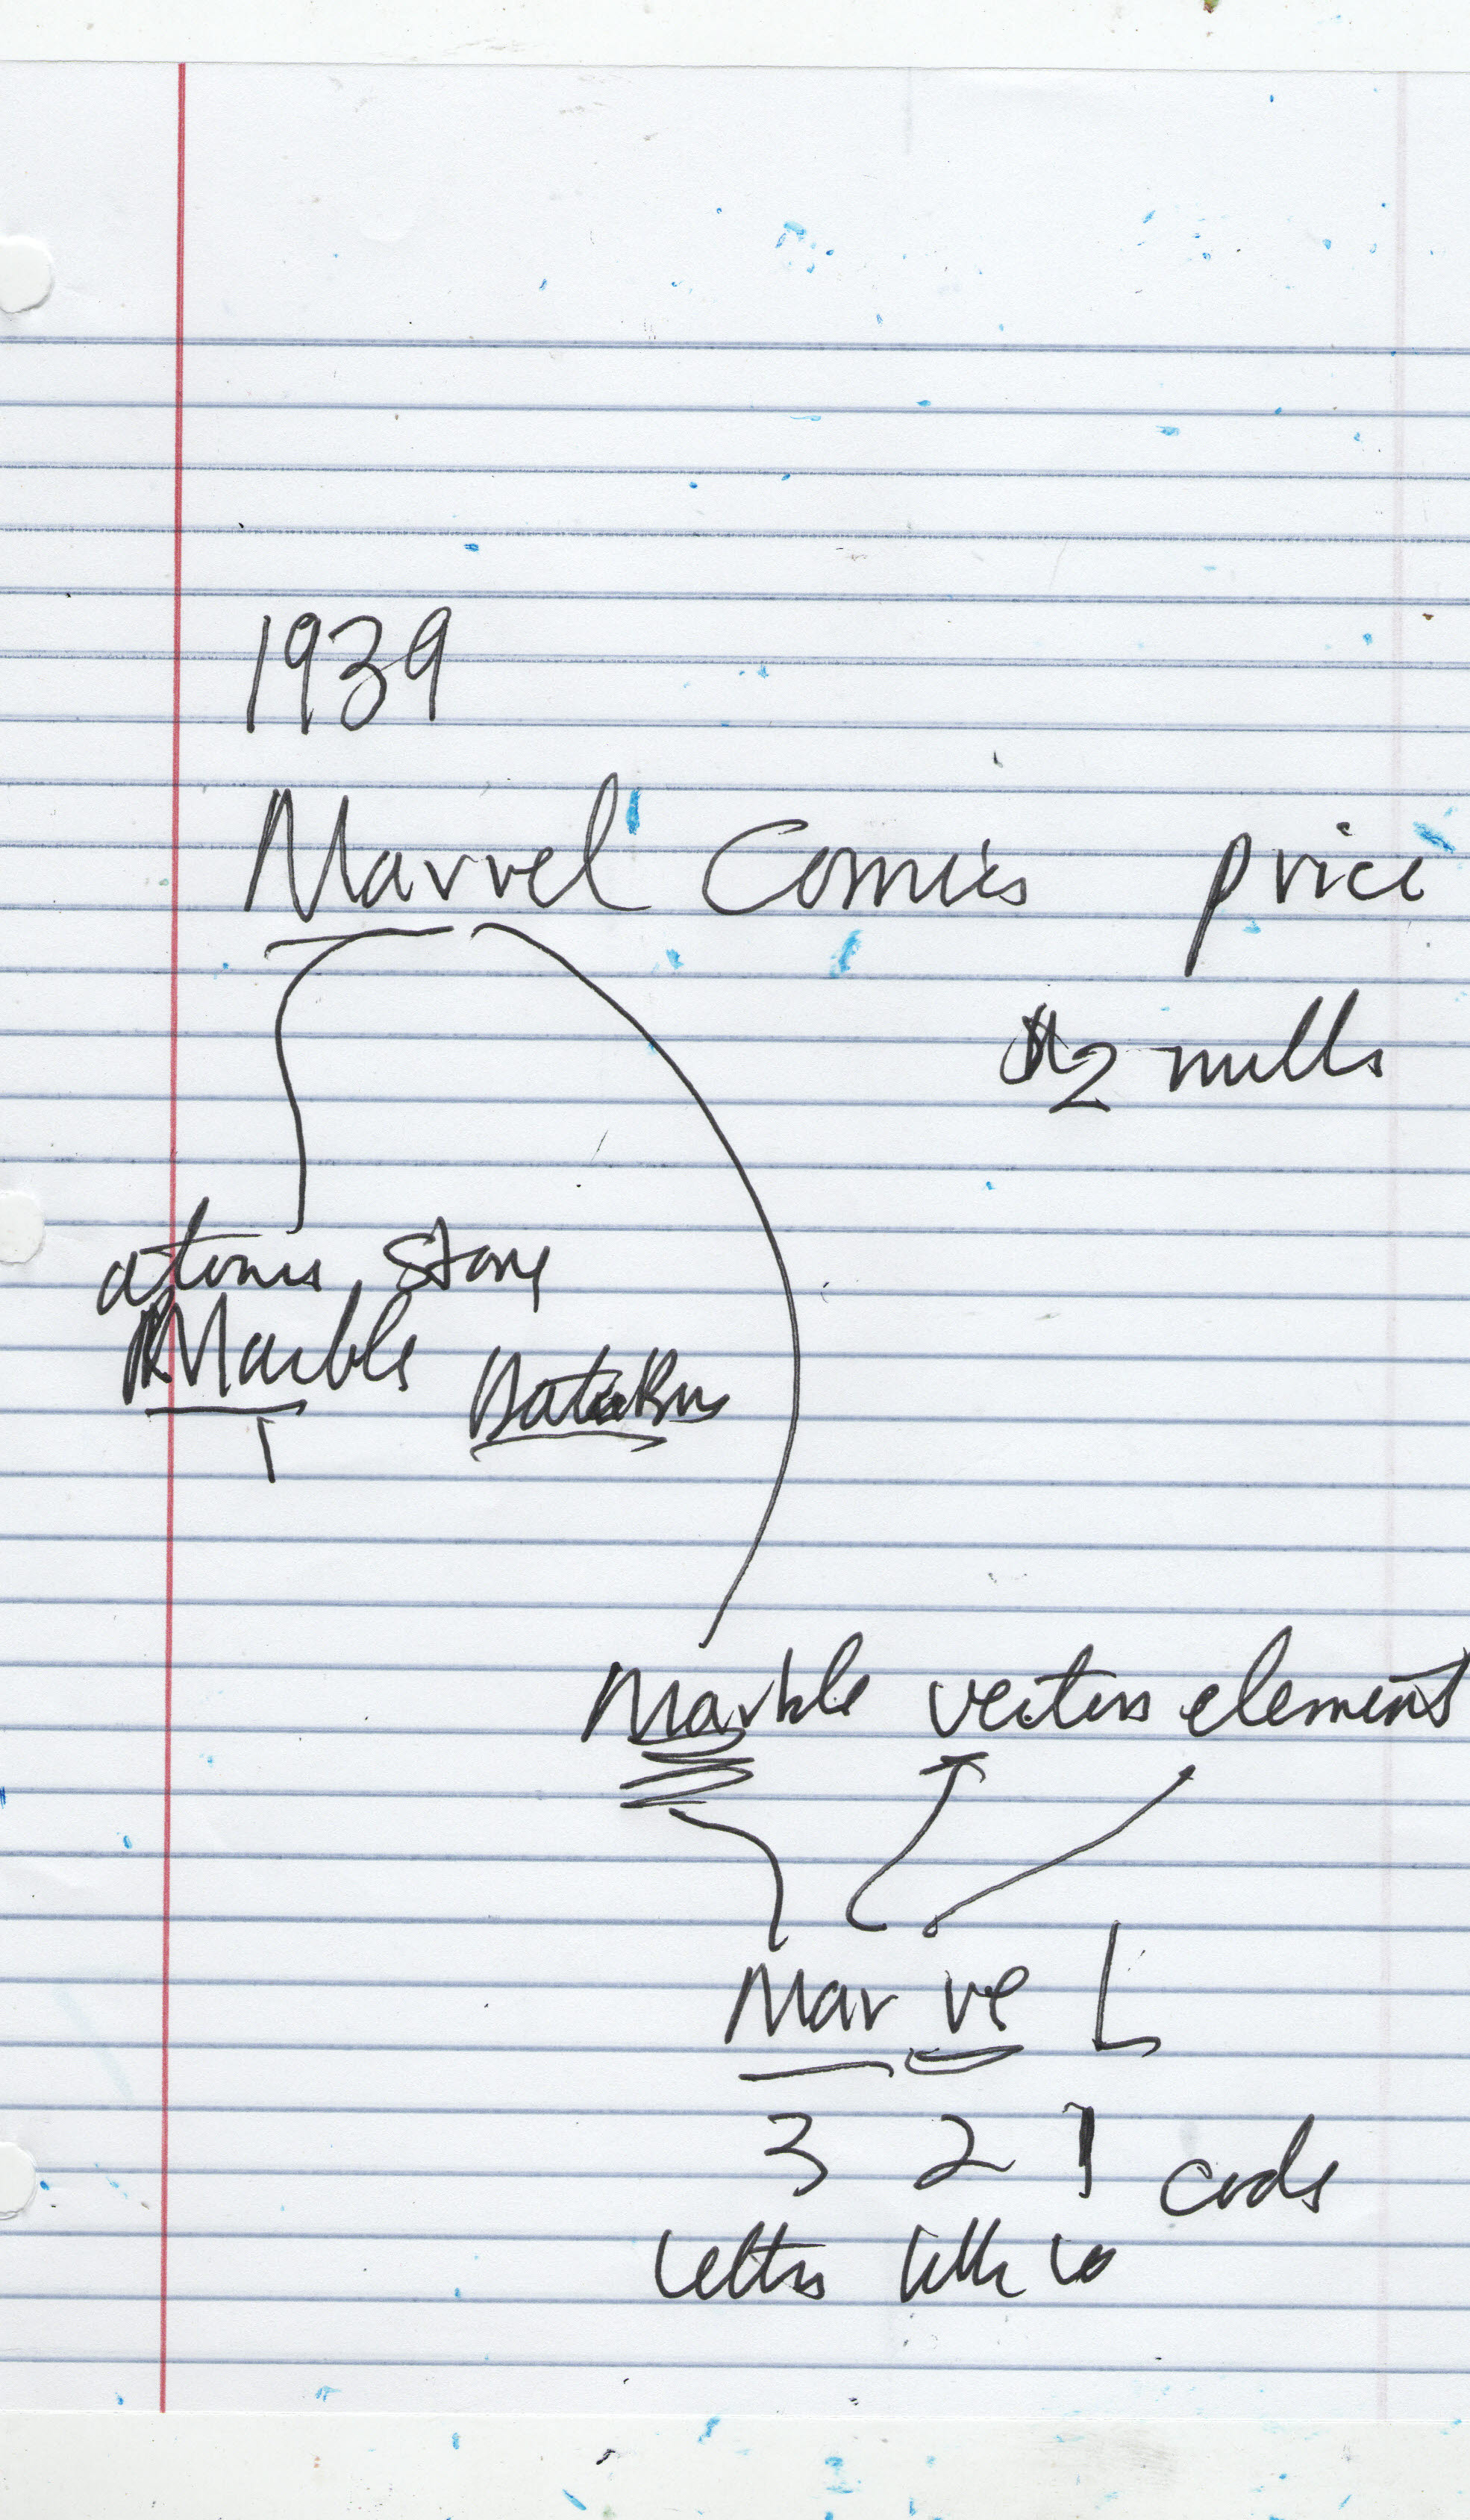 1939
Marvel Comics price
$2 mills
atoms stone
Marble DataBus
Marble vectors element
Mar ve L
3 2 1 code
letters